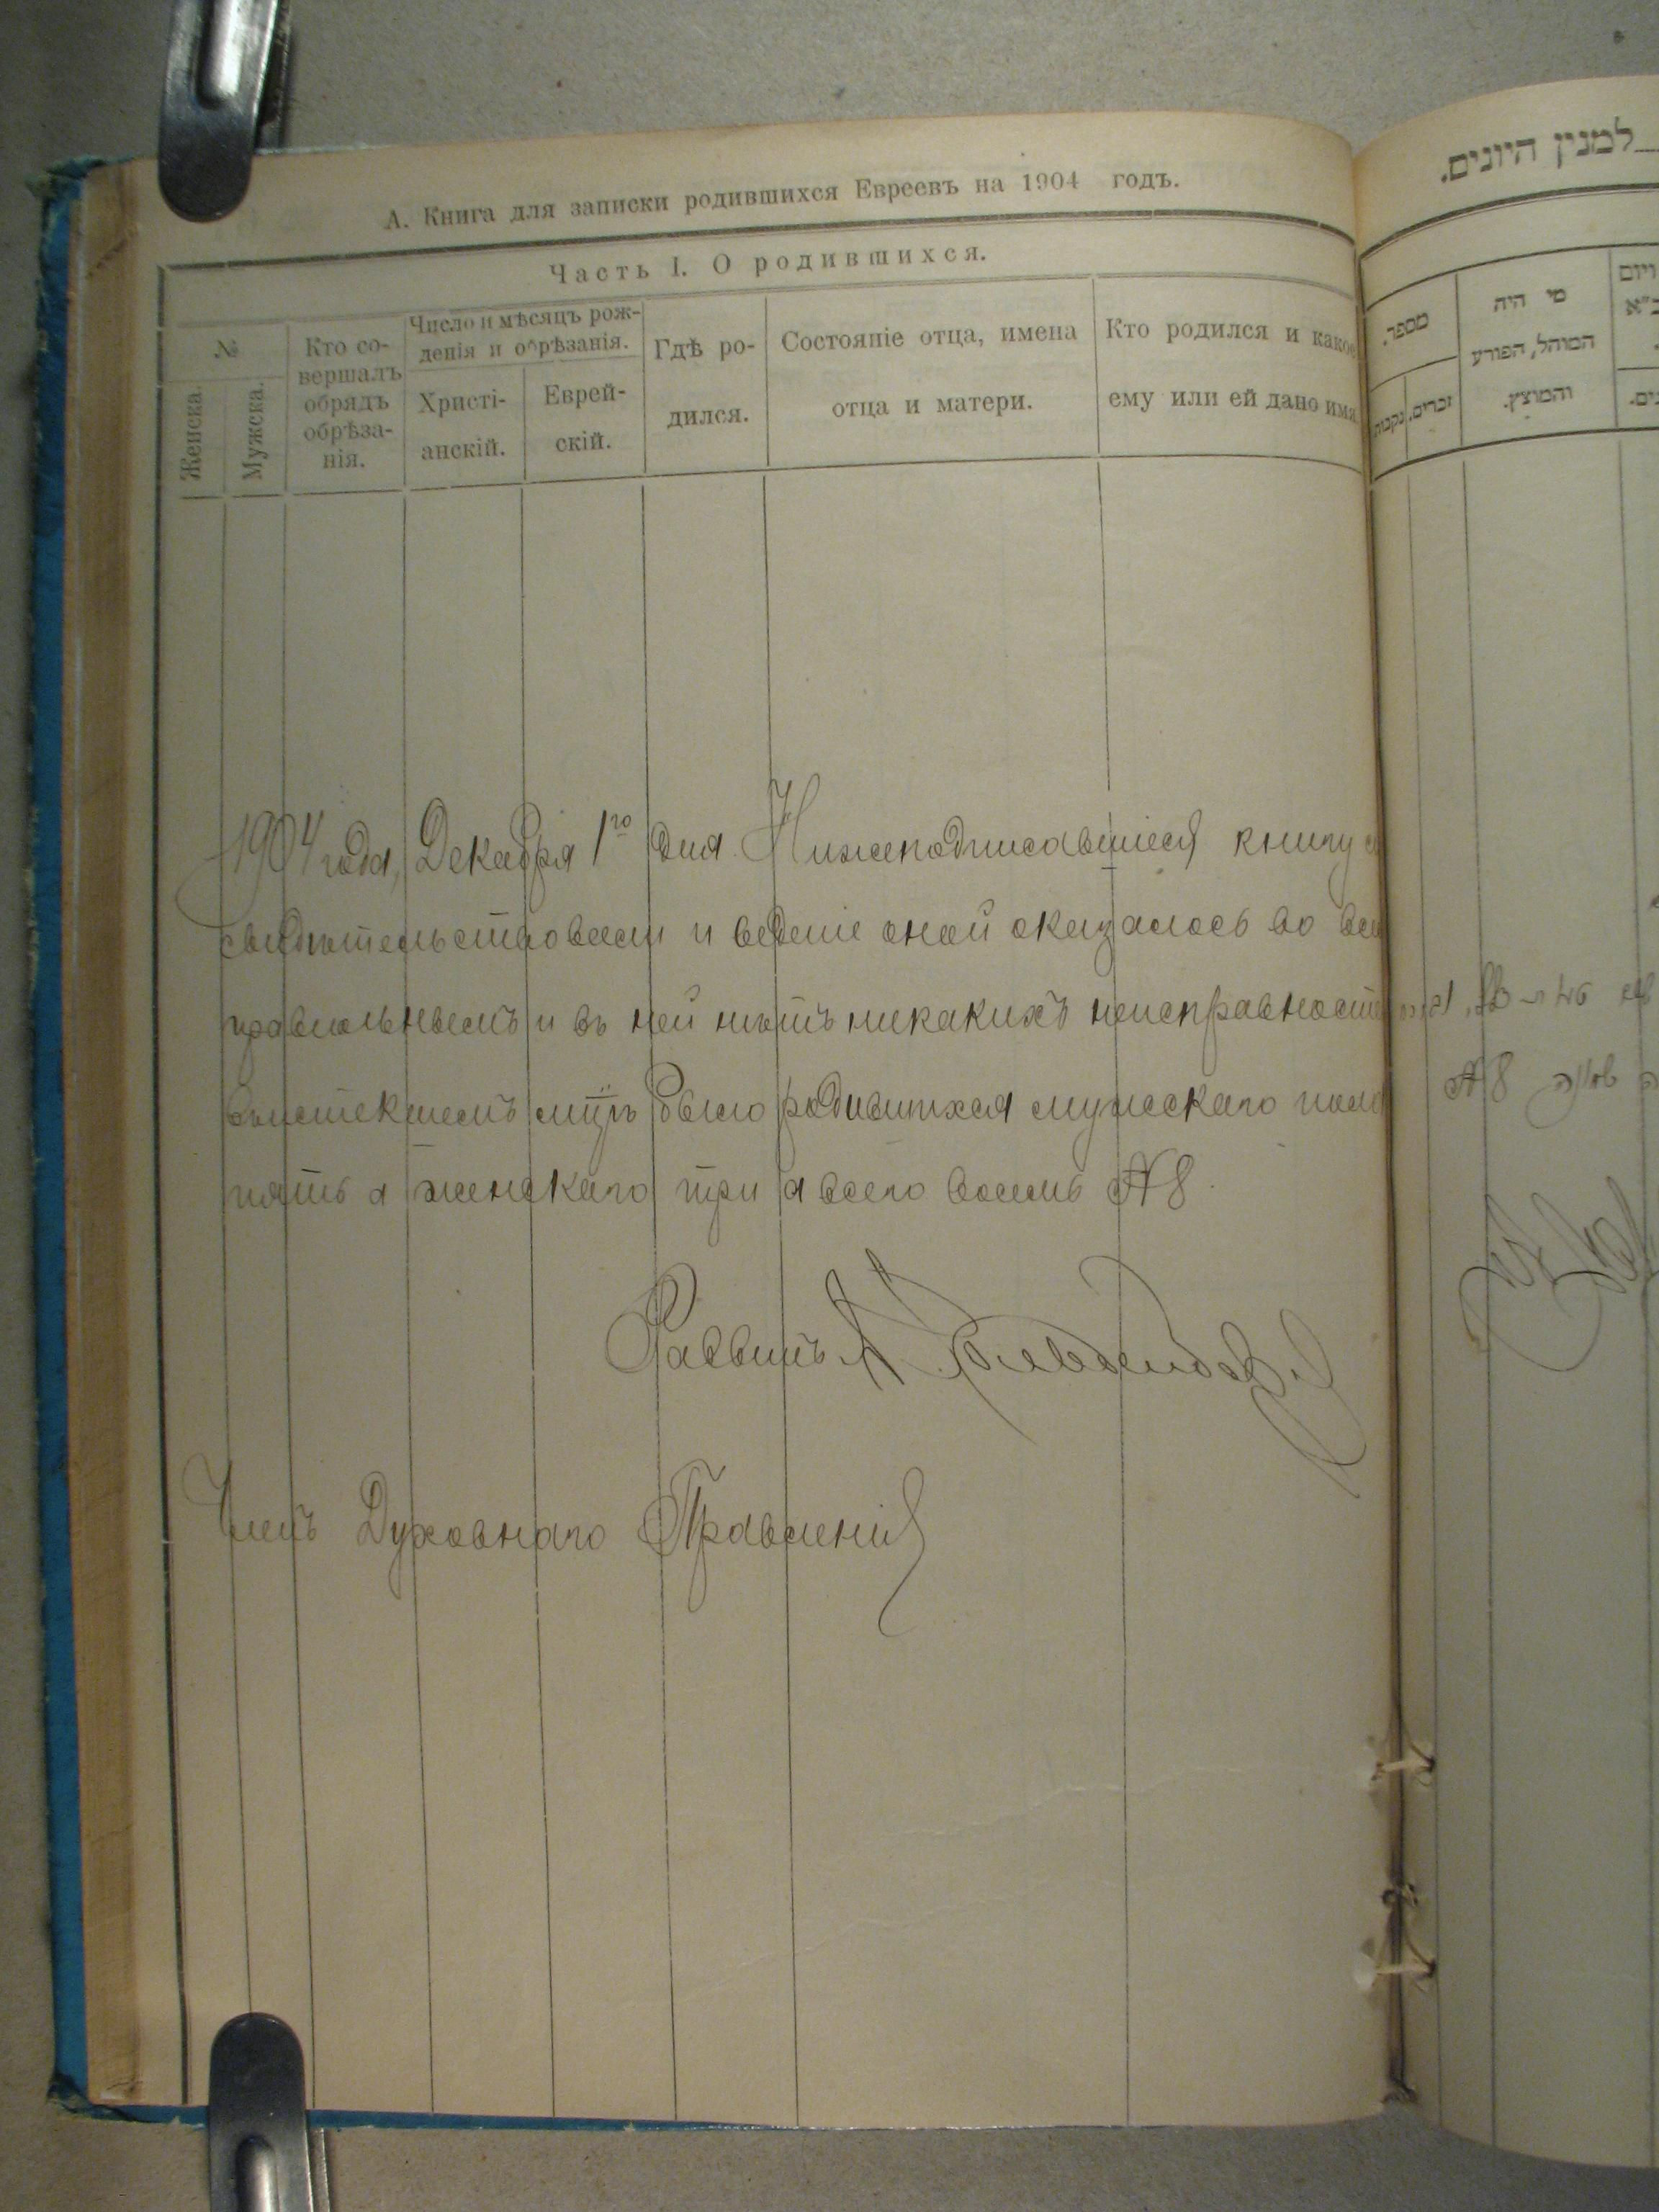 А. Книга для записки родившихся Евреевъ на 1904 годъ.
Часть I. О родившихся.
№
Женска.
Мужска.
Кто со-
вершалъ
обрядъ
обрѣза-
нія.
Число и мѣсяцъ рож-
денія и обрѣзанія.
Христі-
анскій.
Еврей-
скій.
Гдѣ ро-
дился.
Состояніе отца, имена
отца и матери.
Кто родился и какое
ему или ей дано имя
1904 года, Декабря 1го дня Нижеподписавшіеся книгу
свидѣтельствовали и веденіе оной оказалось во всемъ
правильнымъ и въ ней нѣтъ никакихъ неисправностей
въ истекшемъ м-цѣ было родившихся мужскаго пола
пять а женскаго три а всего восемь № 8.
Раввинъ
Членъ Духовнаго Правленія
למנין היונים.
מספר.
זכרים.
נקבות
מי היה
המוהל, הפורע
והמוצץ.
ויום
שמונה № 8